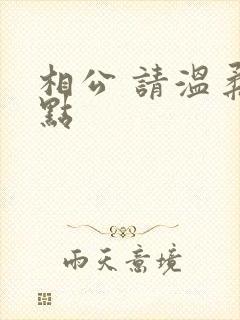 相公 請溫柔
點
雨天意境